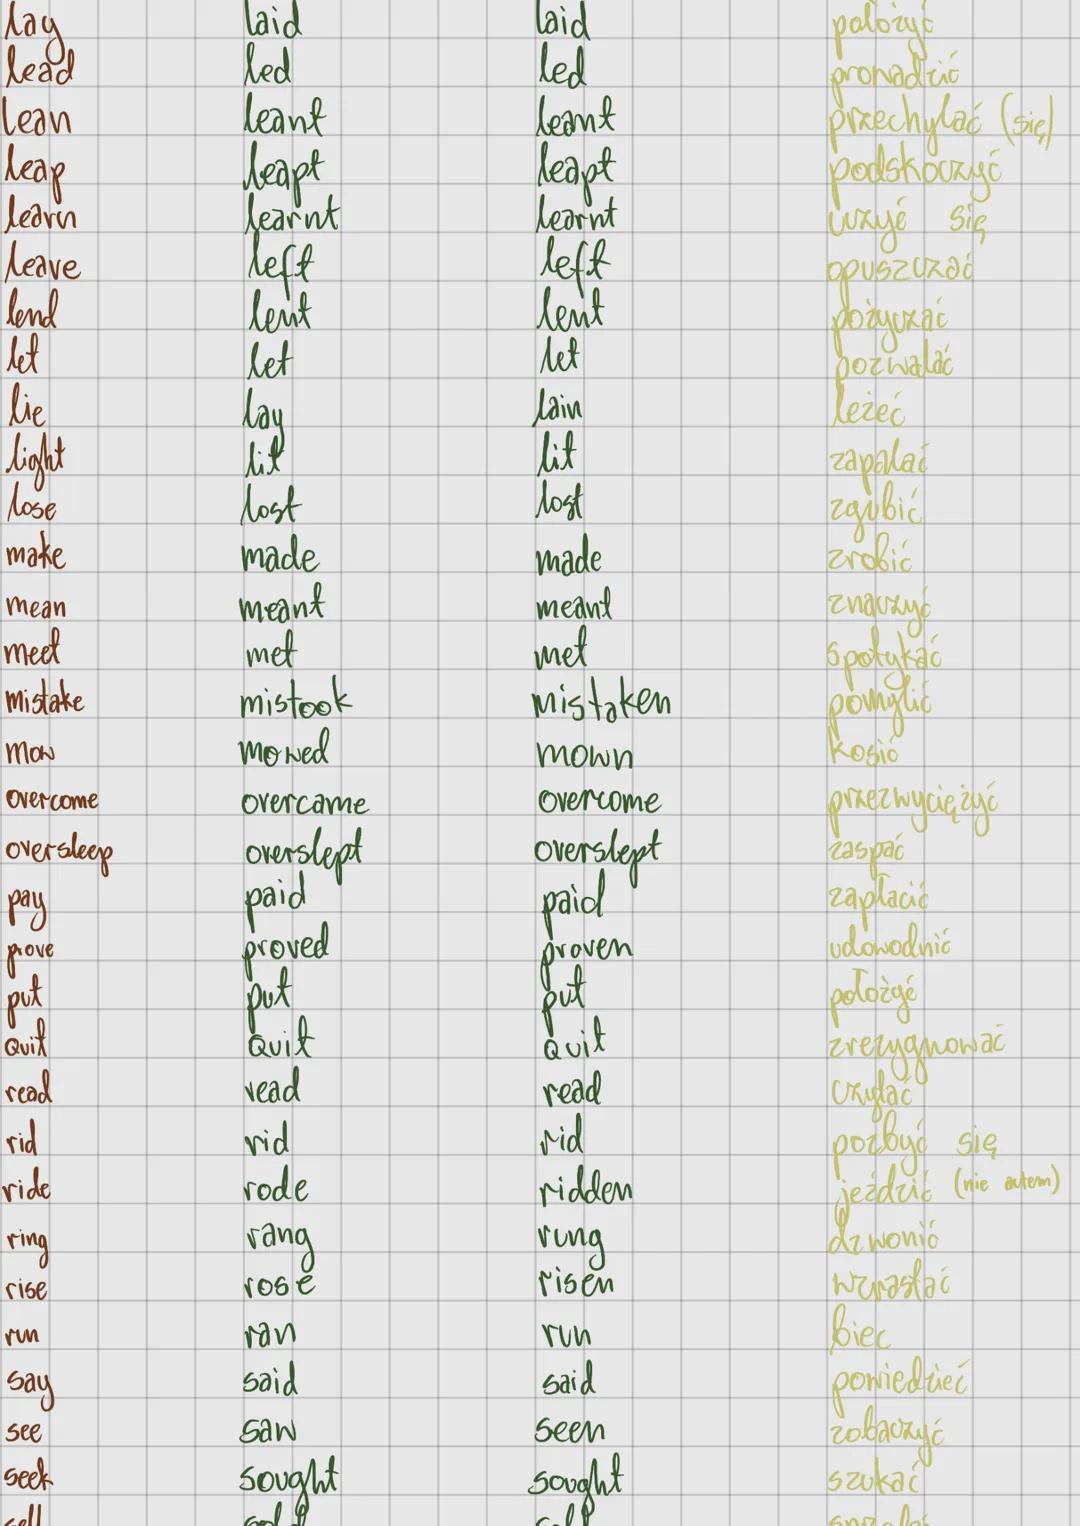 lay laid laid położyć
lead led led prowadzić
lean leant leant przechylać (się)
leap leapt leapt podskoczyć
learn learnt learnt uczyć się
leave left left opuszczać
lend lent lent pożyczać
let let let pozwalać
lie lay lain leżeć
light lit lit zapalać
lose lost lost zgubić
make made made zrobić
mean meant meant znaczyć
meet met met spotykać
mistake mistook mistaken pomylić
mow mowed mown kosić
overcome overcame overcome przezwyciężyć
oversleep overslept overslept zaspać
pay paid paid zapłacić
prove proved proven udowodnić
put put put położyć
quit quit quit zrezygnować
read read read czytać
rid rid rid pozbyć się
ride rode ridden jeździć (nie autem)
ring rang rung dzwonić
rise rose risen wzrastać
run ran run biec
say said said powiedzieć
see saw seen zobaczyć
seek sought sought szukać
sell sold sold